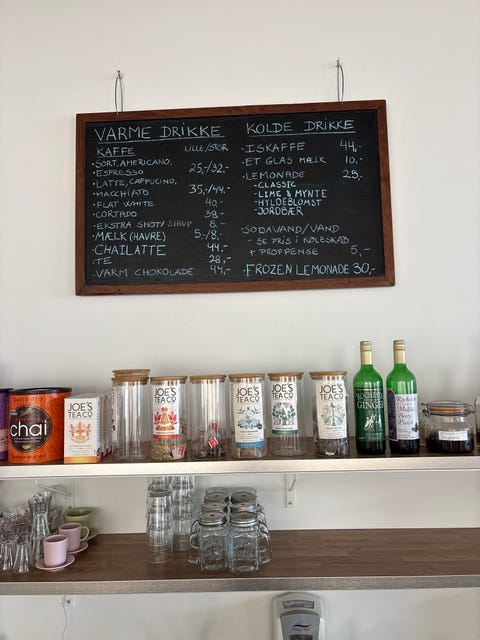 VARME DRIKKE
KAFFE LILLE/STOR
·SORT, AMERICANO,
ESPRESSO 25,-/32,-
·LATTE, CAPPUCINO,
MACCHIATO 35,-/44,-
·FLAT WHITE 40,-
·CORTADO 38.-
·EKSTRA SHOT/SIRUP 8.-
·MÆLK (HAVRE) 5,-/8,-
CHAILATTE 44,-
·TE 28,-
·VARM CHOKOLADE 44,-
KOLDE DRIKKE
·ISKAFFE 44,-
·ET GLAS MÆLK 10,-
·LEMONADE 25,-
- CLASSIC
- LIME & MYNTE
- HYLDEBLOMST
- JORDBÆR
·SODAVAND/VAND
- SE PRIS I KØLESKAB
+ PROPPENGE 5,-
·FROZEN LEMONADE 30,-
DAVID RIO
chai
JOE'S
TEA CO
JOE'S
TEA CO
JOE'S
TEA CO
JOE'S
TEA CO
JOE'S
TEA CO
ROCHESTER
GINGER
Rochester
Berry
Punch